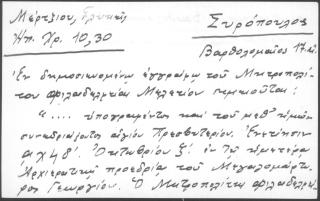 Μέρτζιου,
Ηπ. Χρ. 10, 30
Συρόπουλος
Βαρθολομαῖος 17 αἰ.
Ἐν δημοσιευομένῳ ἐγγράφῳ τοῦ Μητροπολί-
του Φιλαδελφείας Μελετίου σημειοῦται:
".... ὑπογράφοντος καί τοῦ μεθ' ἡμῶν
συνεδριάζοντος ἁγίου Πρεσβυτερίου. Ἐνετίησιν
Ὀκτωβρίου ἐν τῇ ἡμετέρᾳ
Ἀρχιερατικῇ προεδρίᾳ τοῦ Μεγαλομάρτυ-
ρος Γεωργίου. Ὁ Μητροπολίτης Φιλαδελφεί-